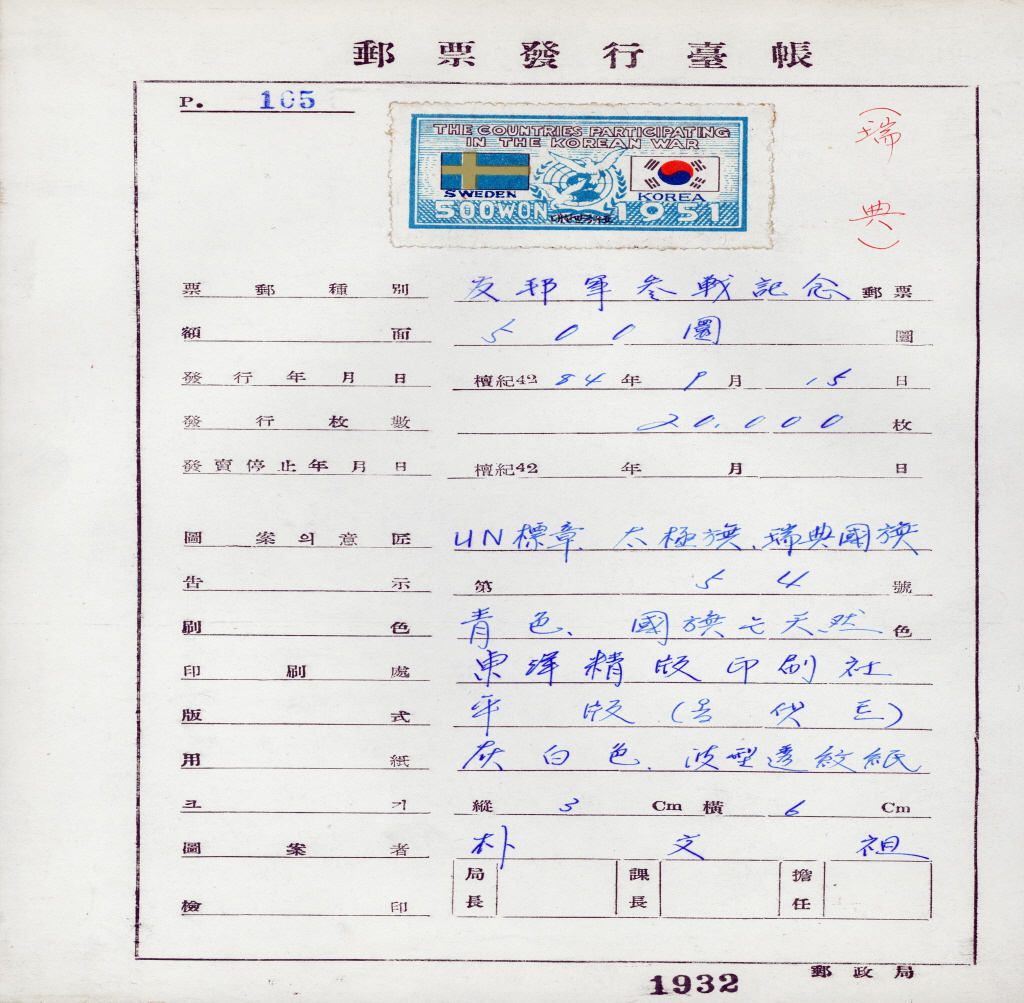 郵票發行臺帳
P. 105
THE COUNTRIES PARTICIPATING
IN THE KOREAN WAR
SWEDEN KOREA
500WON 1951
(瑞典)
票郵種別 友邦軍參戰記念 郵票
額面 500圜 圜
發行年月日 檀紀4284年9月15日
發行枚數 20,000枚
發賣停止年月日 檀紀42 年 月 日
圖案의意匠 UN標章、太極旗、瑞典國旗
告示 第54號
刷色 青色、國旗는天然色
印刷處 東洋精版印刷社
版式 平版(옵셋트)
用紙 灰白色、波型透紋紙
크기 縱 3 Cm 橫 6 Cm
圖案者 朴文祖
檢印 局長 課長 擔任
1932 郵政局